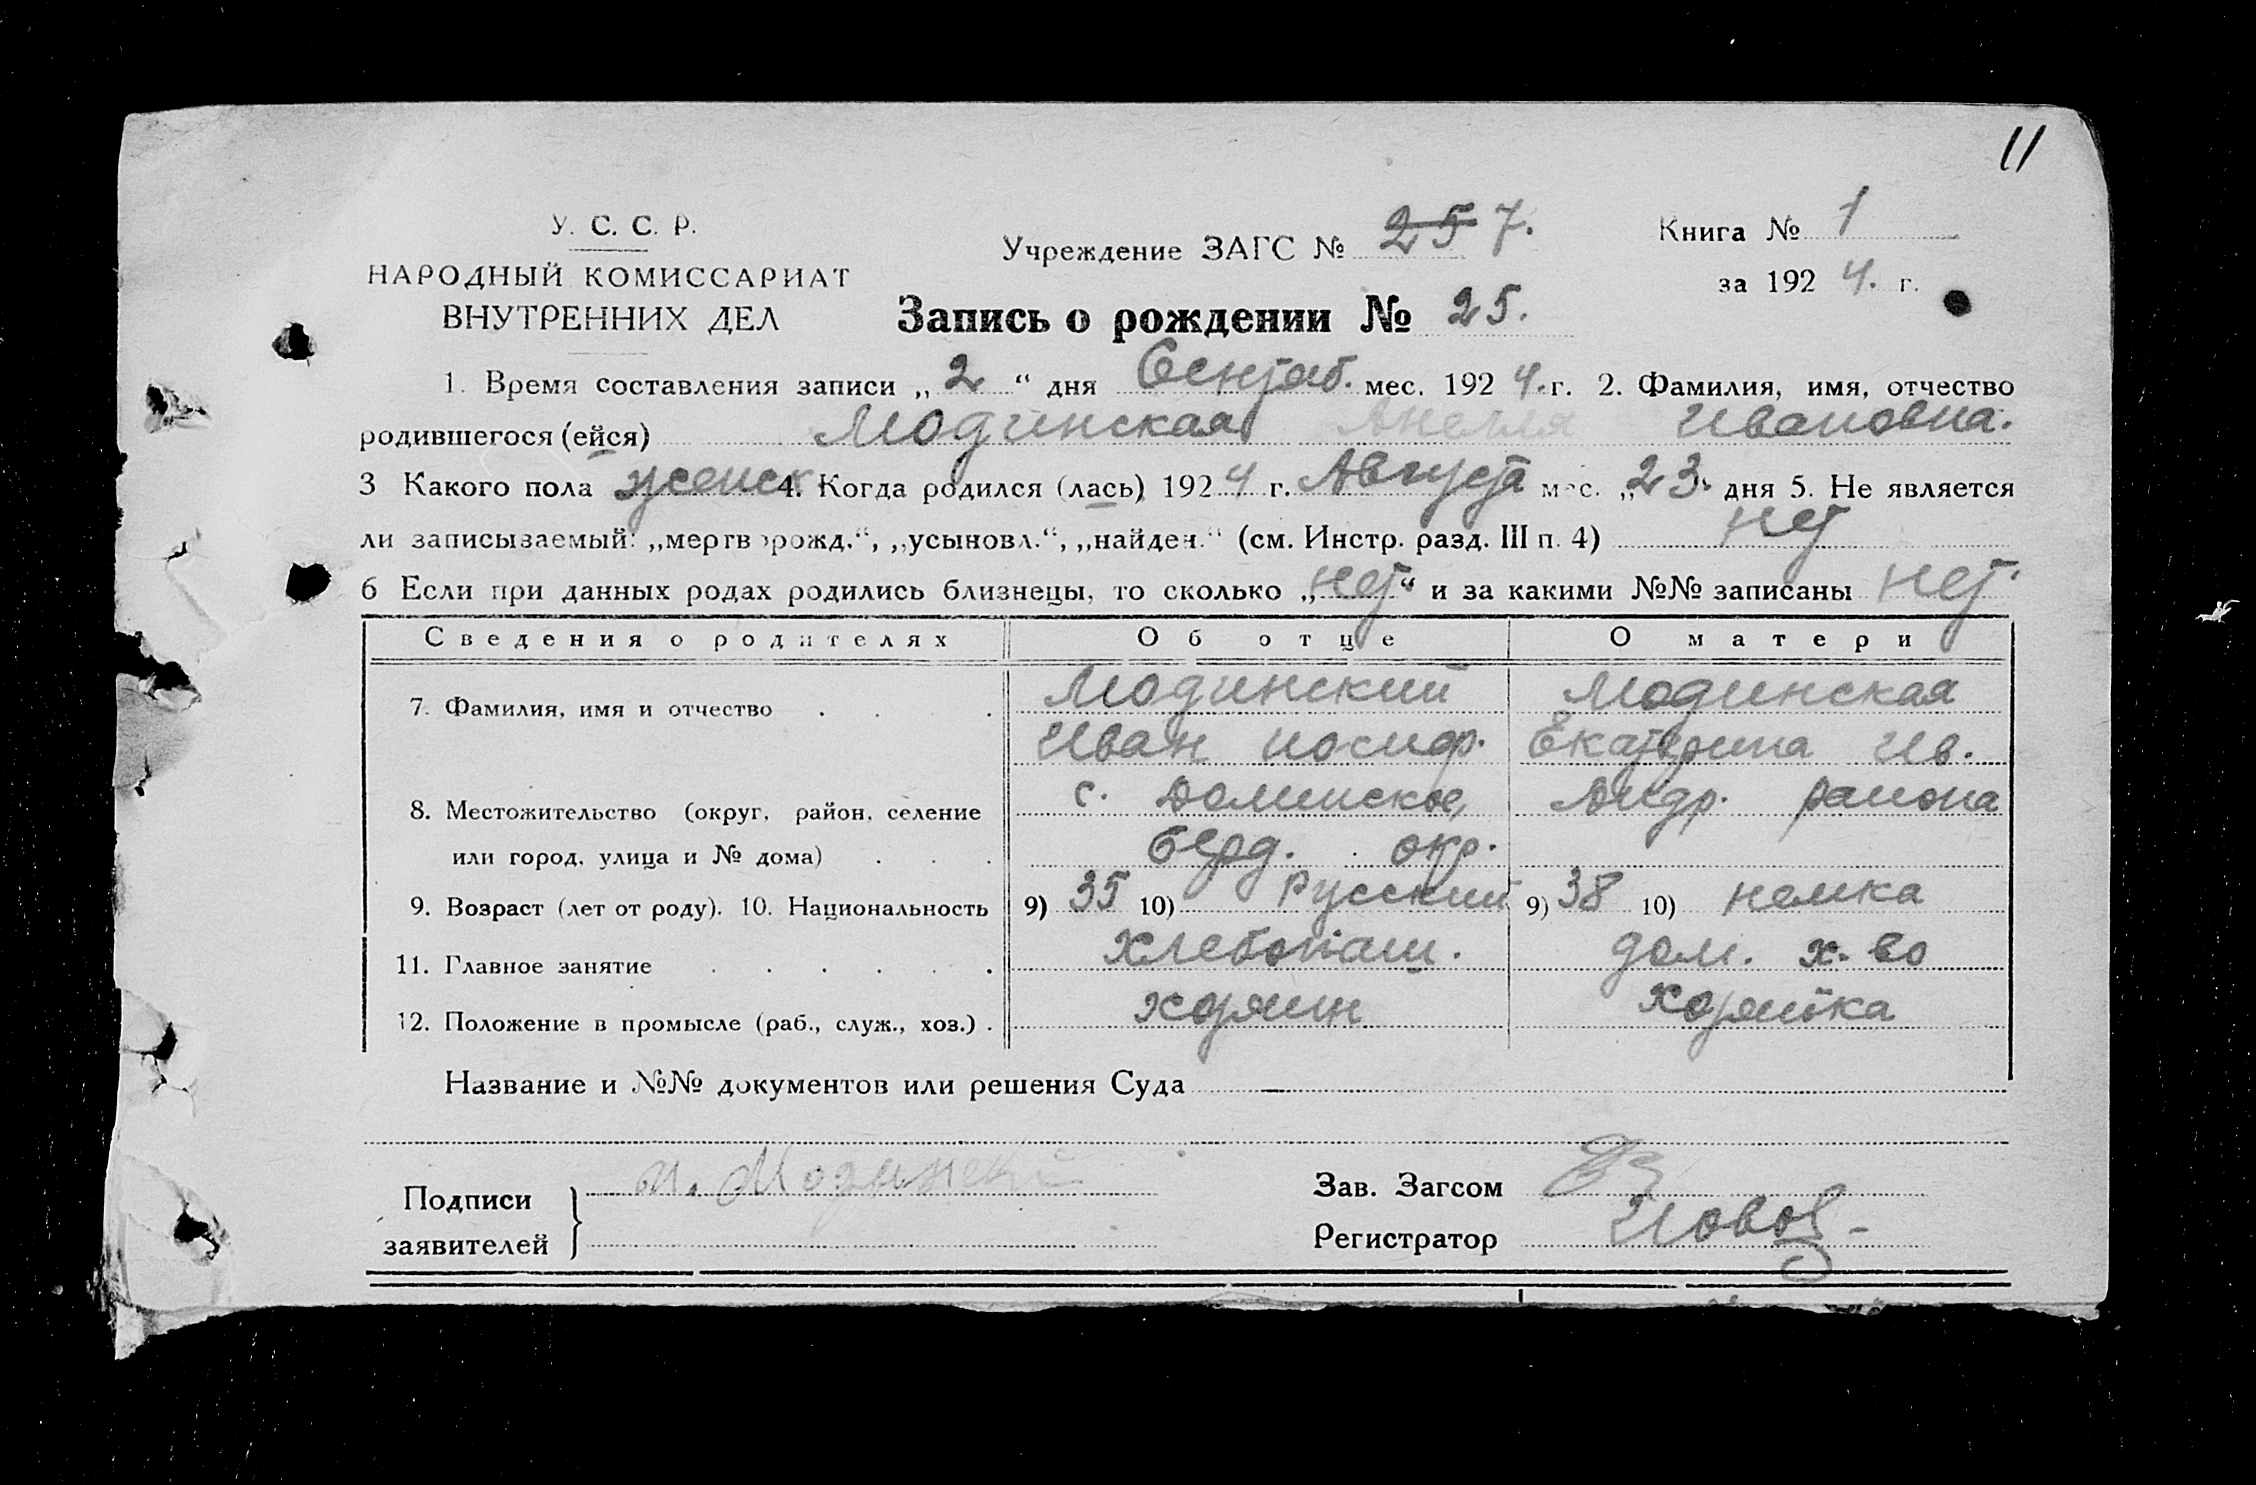 11
У. С. С. Р.
НАРОДНЫЙ КОМИССАРИАТ
ВНУТРЕННИХ ДЕЛ
Учреждение ЗАГС № 25 7.
Книга № 1
за 192 4. г.
Запись о рождении № 25.
1. Время составления записи „ 2 “ дня Сентяб. мес. 192 4. г. 2. Фамилия, имя, отчество
родившегося (ейся) Модинская Анелля Ивановна.
3 Какого пола женск 4. Когда родился (лась) 192 4 г. Августа мес. „ 23. “ дня 5. Не является
ли записываемый: „мертворожд.“, „усыновл.“, „найден.“ (см. Инстр. разд. III п. 4) нет
6 Если при данных родах родились близнецы, то сколько „ нет “ и за какими №№ записаны нет.
Сведения о родителях Об отце О матери
7. Фамилия, имя и отчество . . . . Модинский Модинская
Иван Иосиф. Екатерина Ив.
8. Местожительство (округ, район, селение с. Долинское, Андр. района
или город, улица и № дома) . . . берд. окр.
9. Возраст (лет от роду). 10. Национальность 9) 35 10) Русский 9) 38 10) немка
11. Главное занятие . . . . . . хлебопаш. дом. х-во
12. Положение в промысле (раб., служ., хоз.) . хозяин хозяйка
Название и №№ документов или решения Суда —
Подписи
заявителей
И. Модинский
Зав. Загсом
Регистратор